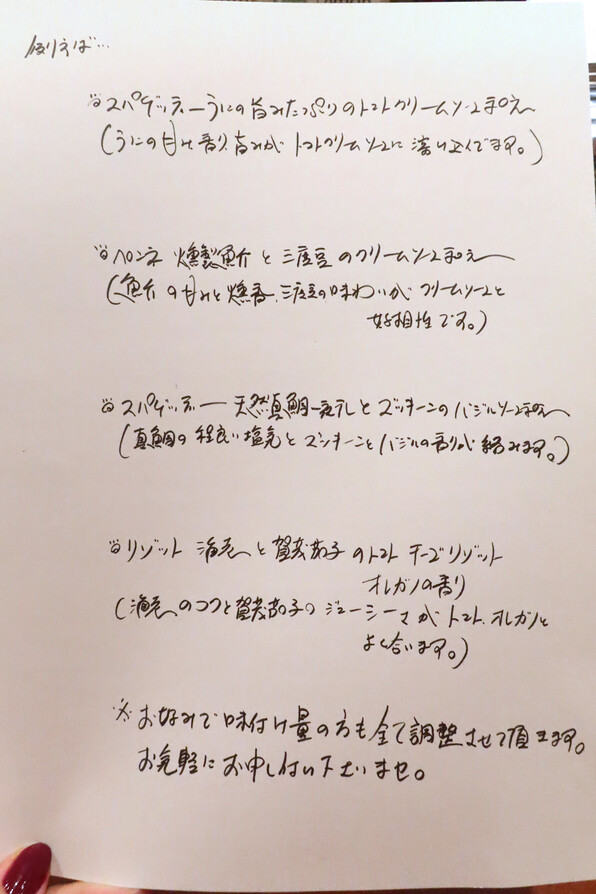 例えば…
スパゲッティー うにの旨みたっぷりのトマトクリームソース和え
(うにの甘み、香り、旨みが トマトクリームソースに 溶け込んでます。)
ペンネ 燻製魚介と三度豆のクリームソース和え
(魚介の甘みと燻香、三度豆の味わいが クリームソースと
好相性です。)
スパゲッティー 天然真鯛一夜干しとズッキーニのバジルソース和え
(真鯛の程良い塩気とズッキーニとバジルの香りが絡みます。)
リゾット 海老と賀茂茄子のトマトチーズリゾット
オレガノの香り
(海老のコクと賀茂茄子のジューシーさがトマト、オレガノと
よく合います。)
※お好みで味付け量の方も全て調整させて頂きます。
お気軽にお申し付け下さいませ。